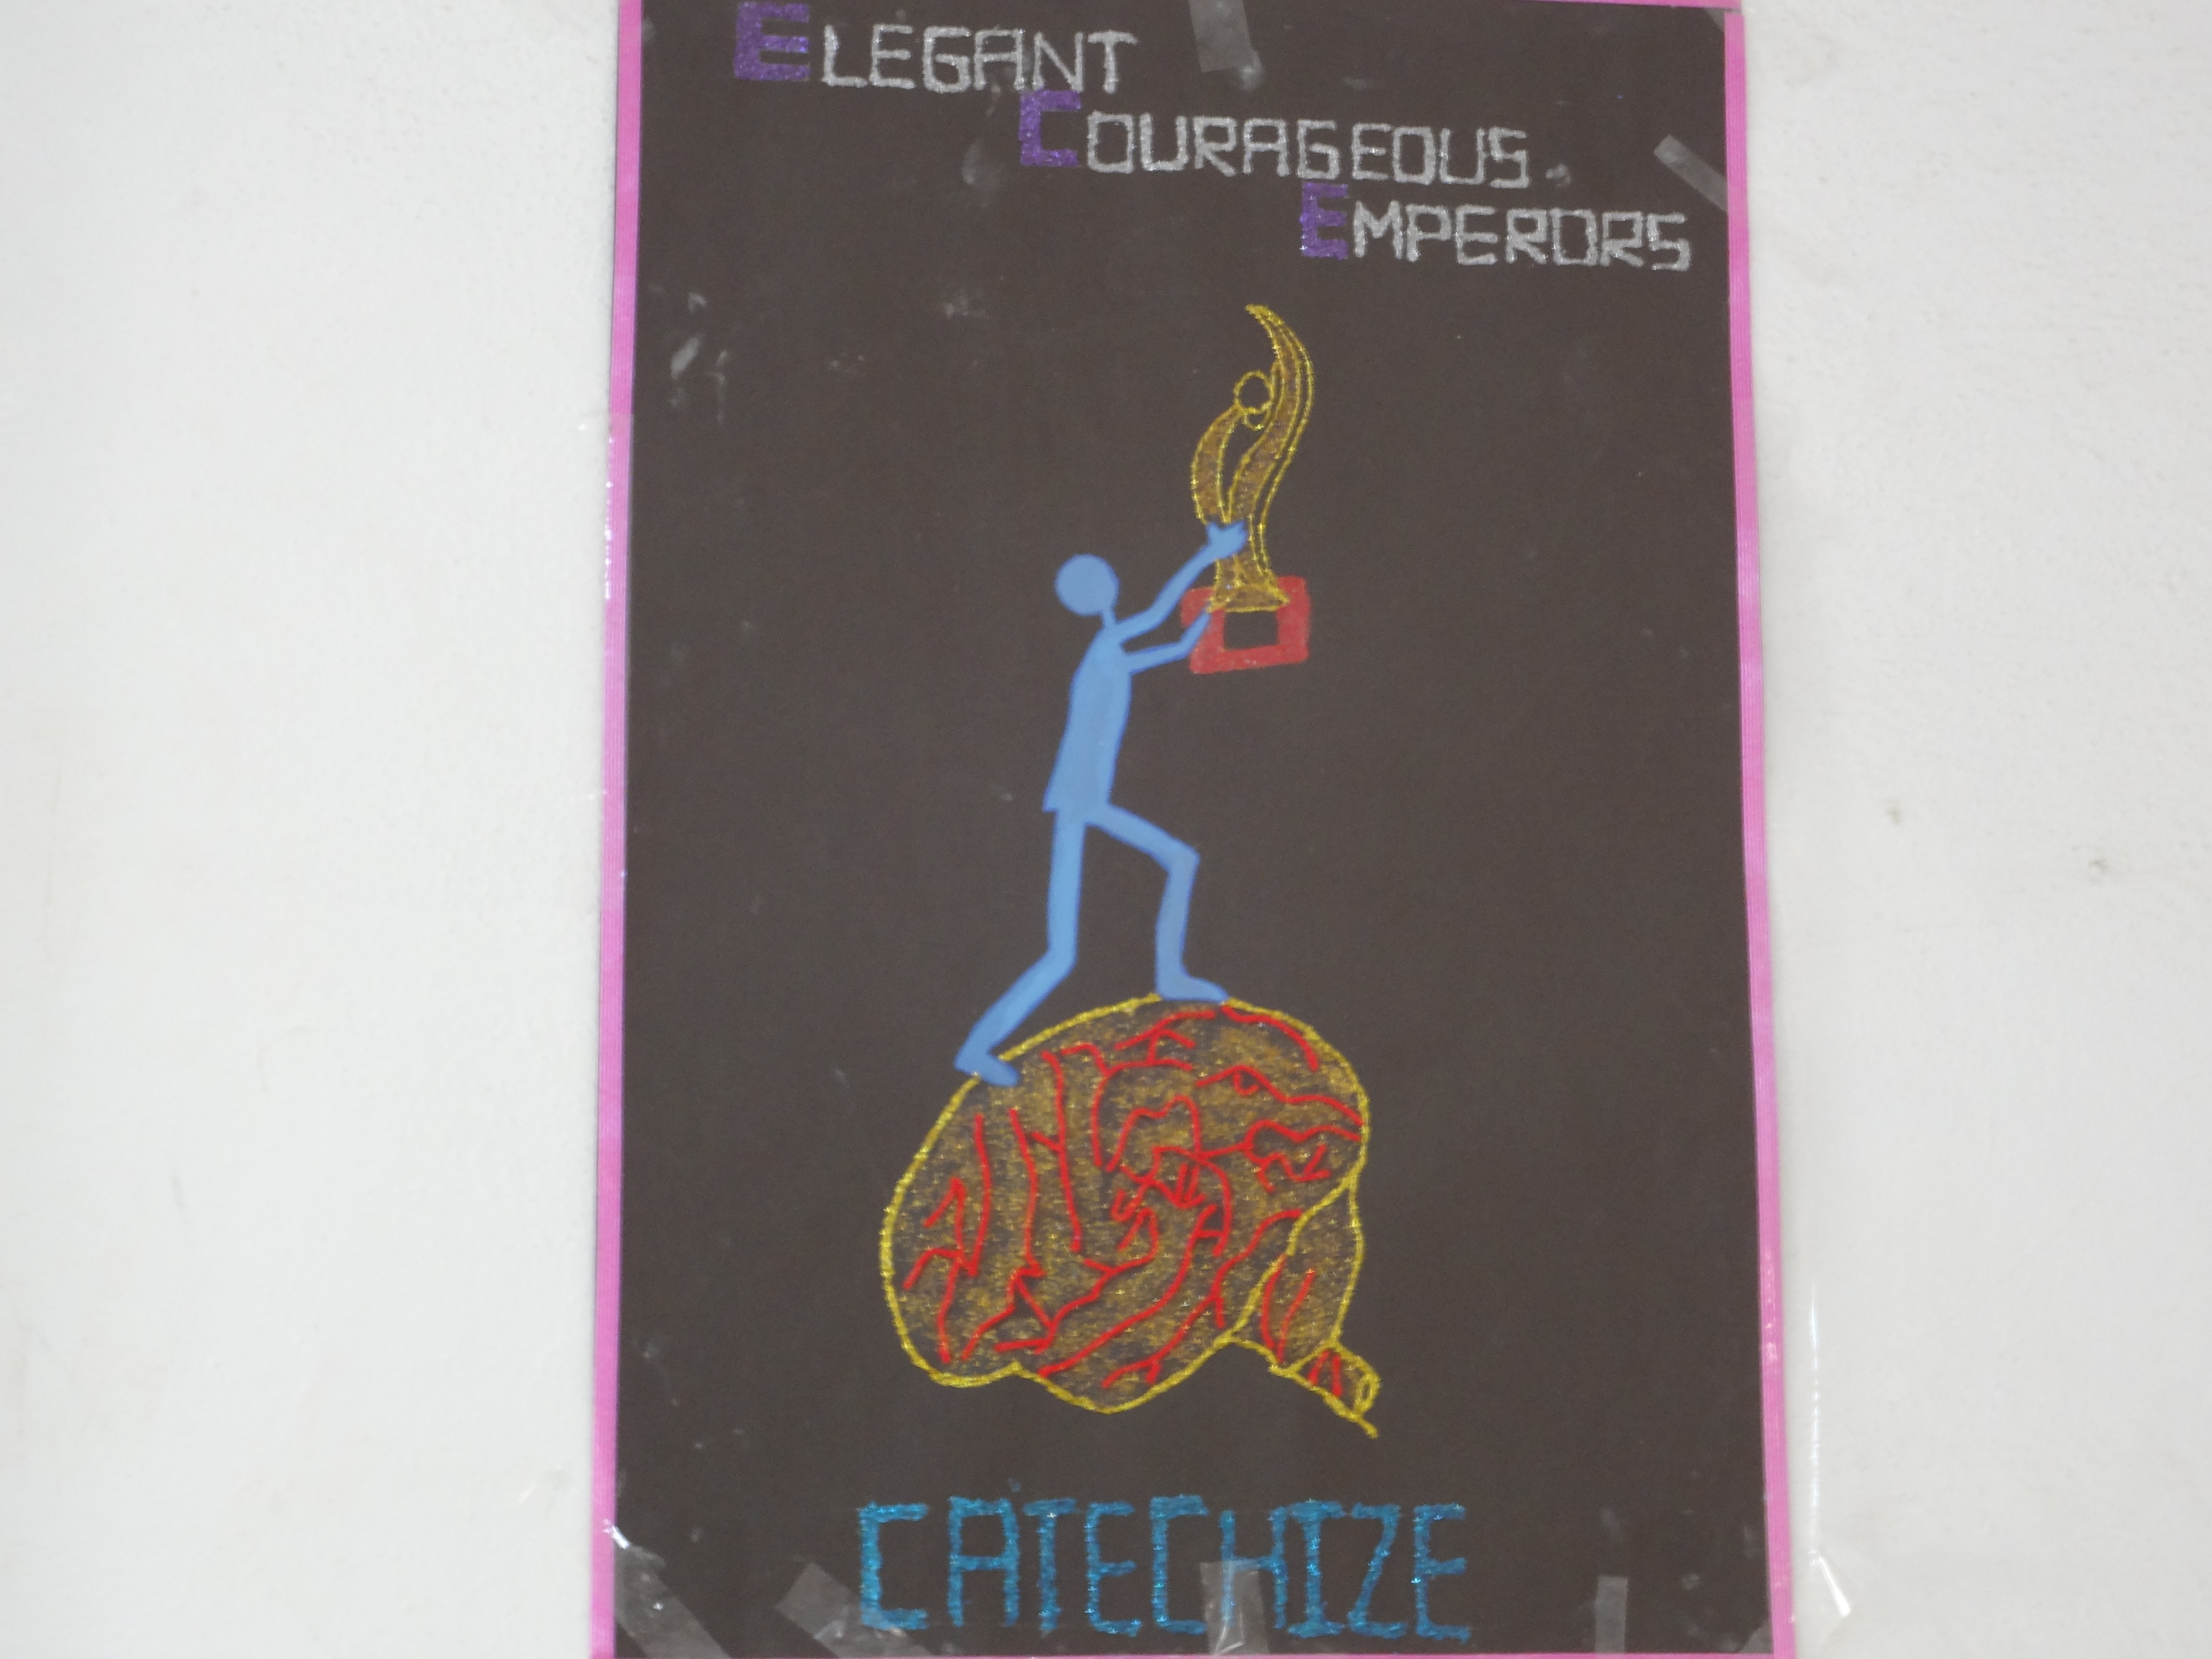 ELEGANT
COURAGEOUS
EMPERORS
CATECHIZE